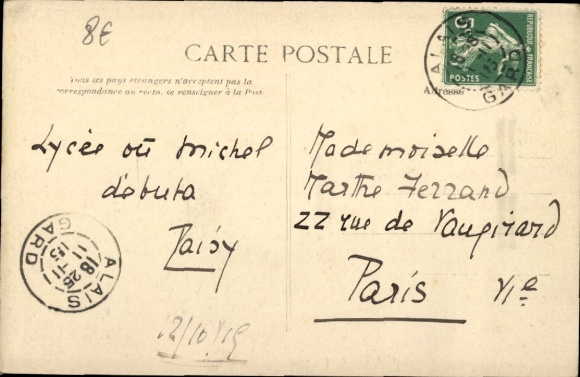 8€
CARTE POSTALE
Tous les pays étrangers n'acceptent pas la
correspondance au recto, se renseigner à la Post
Adresse
5
REPUBLIQUE FRANÇAISE
POSTES
ALAIS
GARD
Lycée où Michel
débuta
Mademoiselle
Marthe Ferrand
22 rue de Vaugirard
Paris VIe
ALAIS
18 25
11 -11
GARD